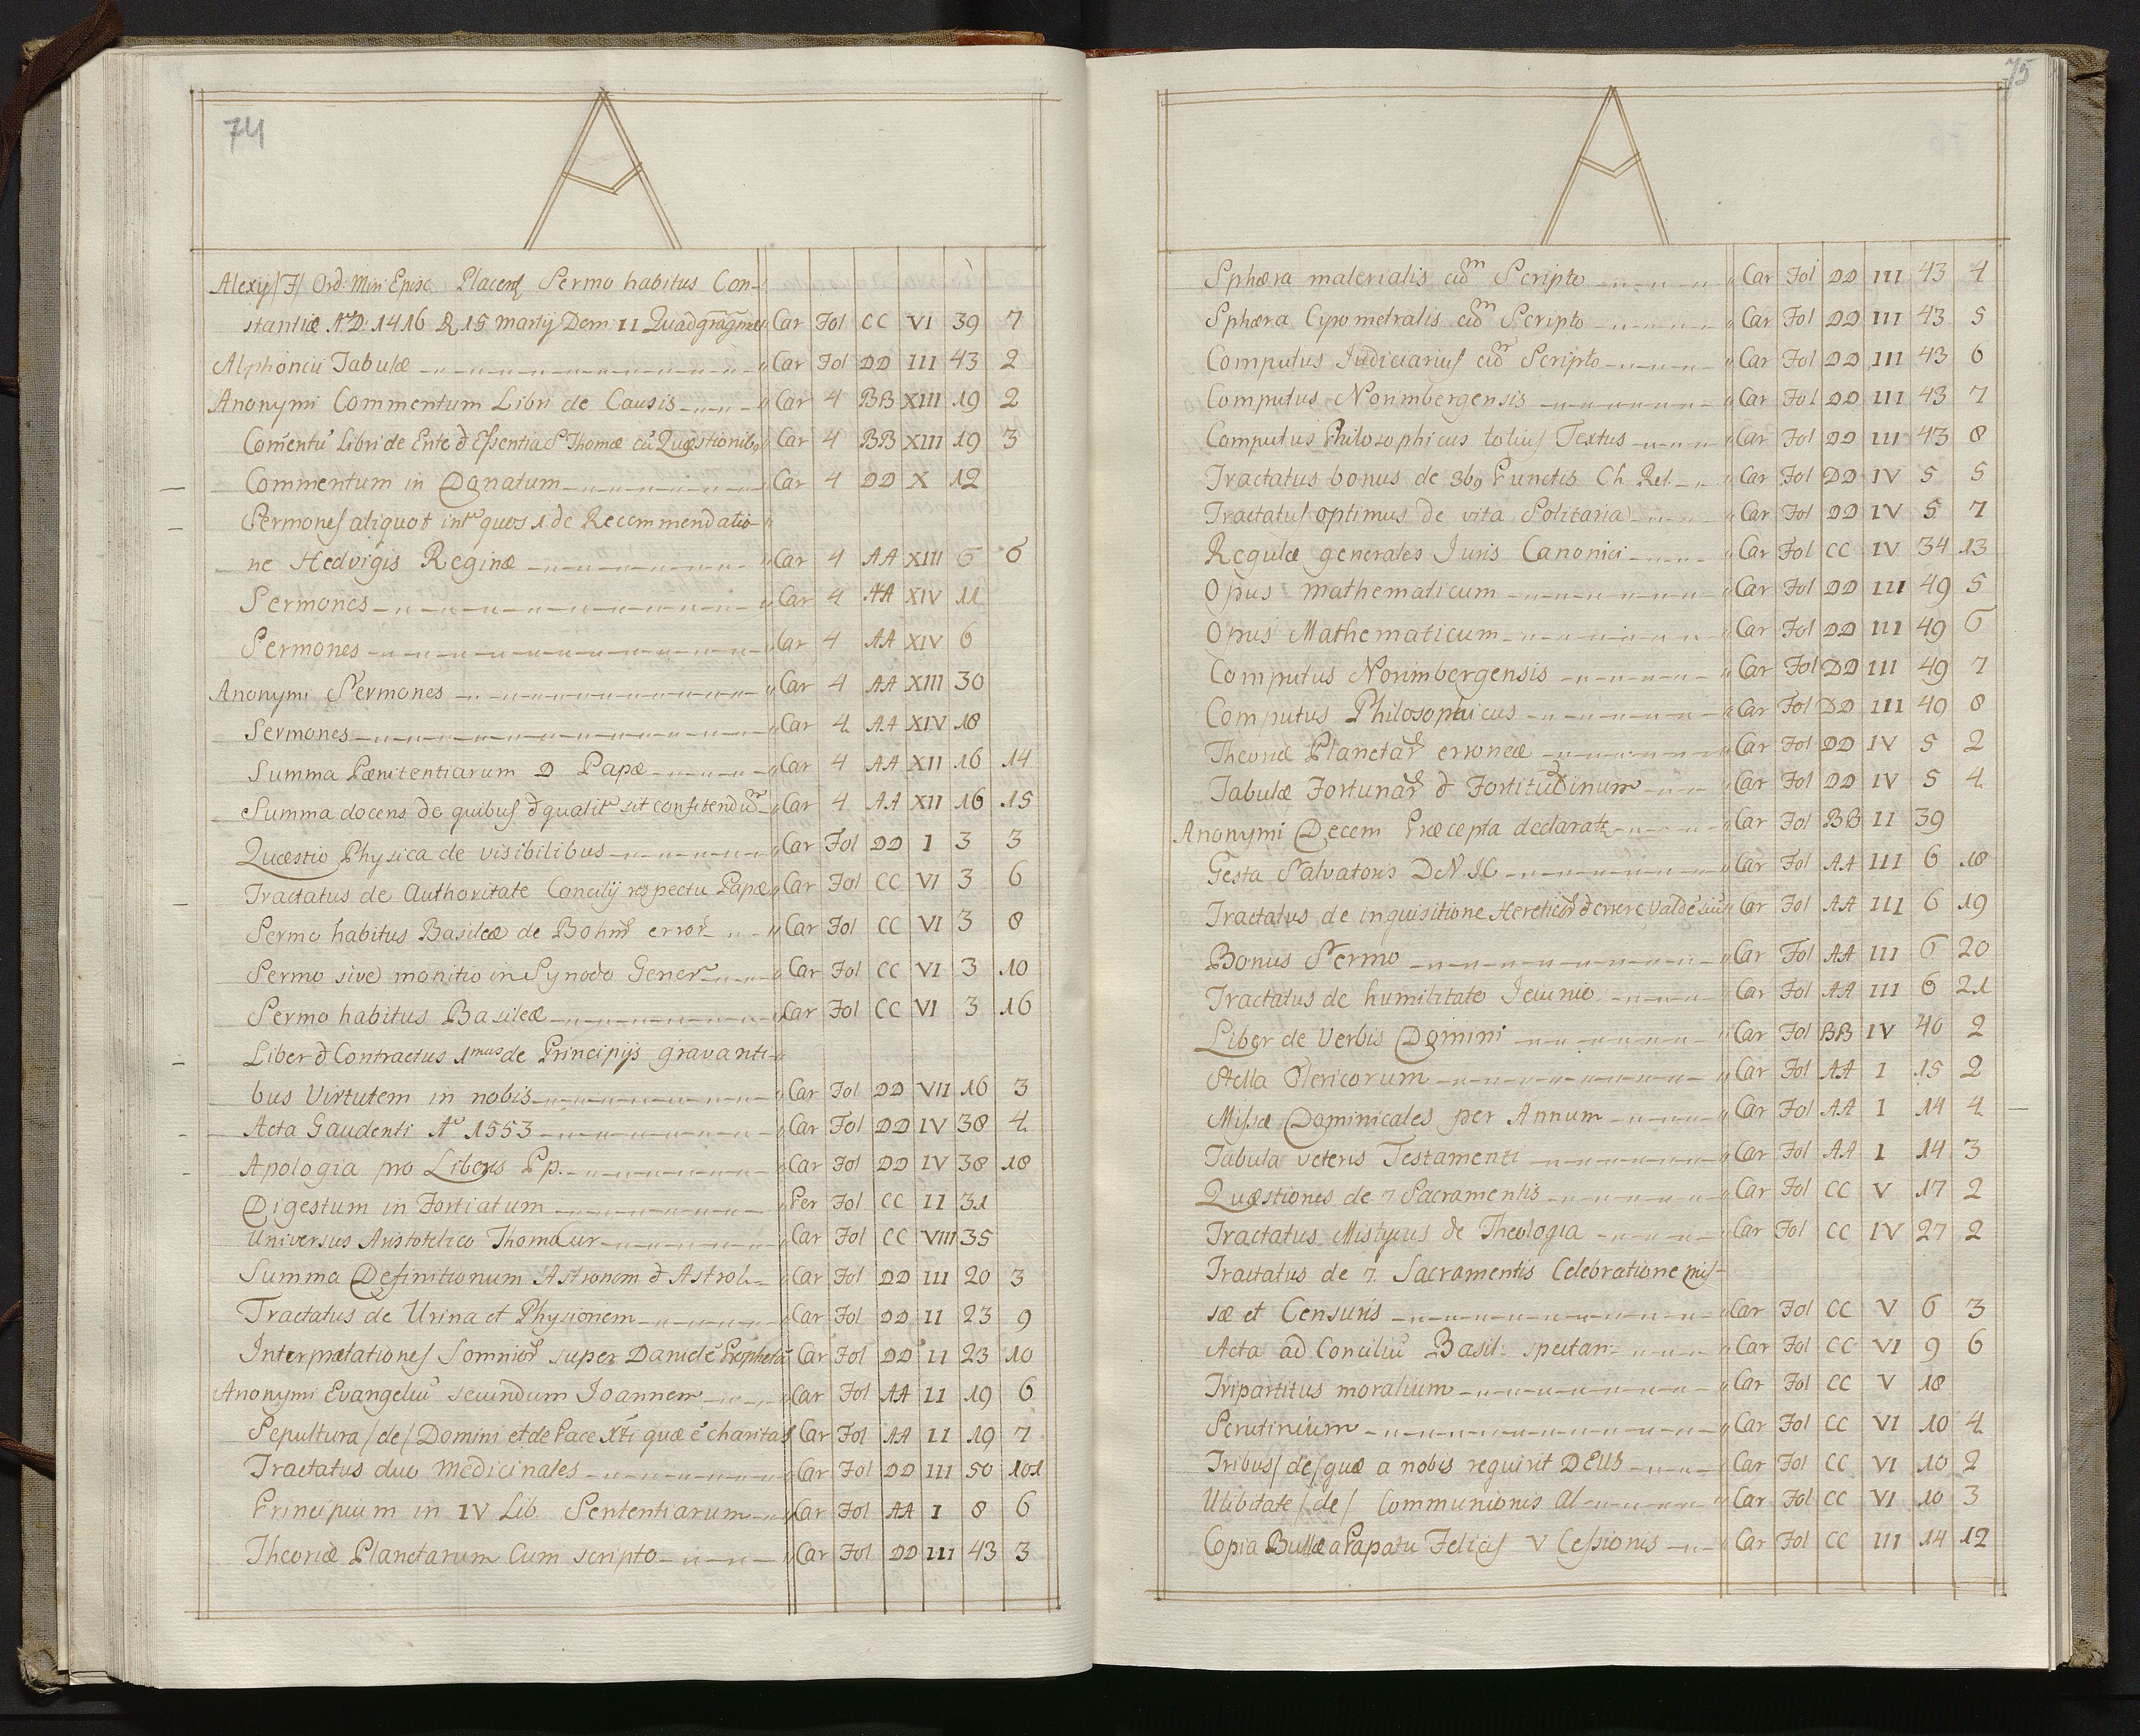 74
A
Alexij /F/ Ord: Min: Episc Placent Sermo habitus Con-
stantiæ A.D. 1416 R 15 Martij Dom: II Quadgragmæ Car Fol CC VI 39 7
Alphoncii Tabulæ Car Fol DD III 43 2
Anonymi Commentum Libri de Causis Car 4 BB XIII 19 2
Comentu Libri de Ente & Essentia S Thomæ cu Quæstionib9 Car 4 BB XIII 19 3
Commentum in Donatum Car 4 DD X 12
Sermones aliquot intr quos 1. de Recommendatio-
ne Hedvigis Reginæ Car 4 AA XIII 6 6
Sermones Car 4 AA XIV 11
Sermones Car 4 AA XIV 6
Anonymi Sermones Car 4 AA XIII 30
Sermones Car 4 AA XIV 18
Summa Pænitentiarum D Papæ Car 4 AA XII 16 14
Summa docens de quibus & qualitr sit confitendum Car 4 AA XII 16 15
Quæstio Physica de visibilibus Car Fol DD I 3 3
Tractatus de Authoritate Concilij respectu Papæ Car Fol CC VI 3 6
Sermo habitus Basileæ de Bohmr error Car Fol CC VI 3 8
Sermo sive monitio in Synodo Gener Car Fol CC VI 3 10
Sermo habitus Basileæ Car Fol CC VI 3 16
Liber & Contractus 1mus de Principijs gravanti-
bus Virtutem in nobis Car Fol DD VII 16 3
Acta Gaudenti Ao 1553 Car Fol DD IV 38 4
Apologia pro Liberis Pp. Car Fol DD IV 38 18
Digestum in Fortiatum Per Fol CC II 31
Universus Aristotelico Thoma Cur Car Fol CC VIII 35
Summa Definitionum Astronom & Astrol Car Fol DD III 20 3
Tractatus de Urina et Physionem Car Fol DD II 23 9
Interprætationes Somnior super Daniele Propheta Car Fol DD II 23 10
Anonymi Evangeliu secundum Joannem Car Fol AA II 19 6
Sepultura /de/ Domini et de Pace Xti quæ e charitas Car Fol AA II 19 7
Tractatus duo Medicinales Car Fol DD III 50 101
Principium in IV Lib. Sententiarum Car Fol AA I 8 6
Theoriæ Planetarum Cum scripto Car Fol DD III 43 3
75
A
Sphæra materialis cum Scripto Car Fol DD III 43 4
Sphæra Cypometralis cum Scripto Car Fol DD III 43 5
Computus Judiciarius cum Scripto Car Fol DD III 43 6
Computus Norimbergensis Car Fol DD III 43 7
Computus Philosophicus totius Textus Car Fol DD III 43 8
Tractatus bonus de 3b9 Punctis Ch. Rel. Car Fol DD IV 5 5
Tractatus optimus de vita Solitaria Car Fol DD IV 5 7
Regulæ generales Juris Canonici Car Fol CC IV 34 13
Opus mathematicum Car Fol DD III 49 5
Opus Mathematicum Car Fol DD III 49 6
Computus Norimbergensis Car Fol DD III 49 7
Computus Philosophicus Car Fol DD III 49 8
Theoriæ Planetar erroneæ Car Fol DD IV 5 2
Tabulæ Fortunar & Fortitudinum Car Fol DD IV 5 4
Anonymi Decem Præcepta declarata Car Fol BB II 39
Gesta Salvatoris D.N.JC Car Fol AA III 6 18
Tractatus de inquisitione Hereticor Car Fol AA III 6 19
Bonus Sermo Car Fol AA III 6 20
Tractatus de humilitate Jeiunio Car Fol AA III 6 21
Liber de Verbis Domini Car Fol BB IV 40 2
Stella Clericorum Car Fol AA I 15 2
Missæ Dominicales per Annum Car Fol AA I 14 4
Tabula veteris Testamenti Car Fol AA I 14 3
Quæstiones de 7 Sacramentis Car Fol CC V 17 2
Tractatus Mistycus de Theologia Car Fol CC IV 27 2
Tractatus de 7. Sacramentis Celebratione mis-
sæ et Censuris Car Fol CC V 6 3
Acta ad Conciliu Basil: spectan Car Fol CC VI 9 6
Tripartitus moralium Car Fol CC V 18
Scrutinium Car Fol CC VI 10 4
Tribus /de/ quæ a nobis requirit DEUS Car Fol CC VI 10 2
Utilitate /de/ Communionis al Car Fol CC VI 10 3
Copia Bullæ a Papatu Felicis V Cessionis Car Fol CC III 14 12